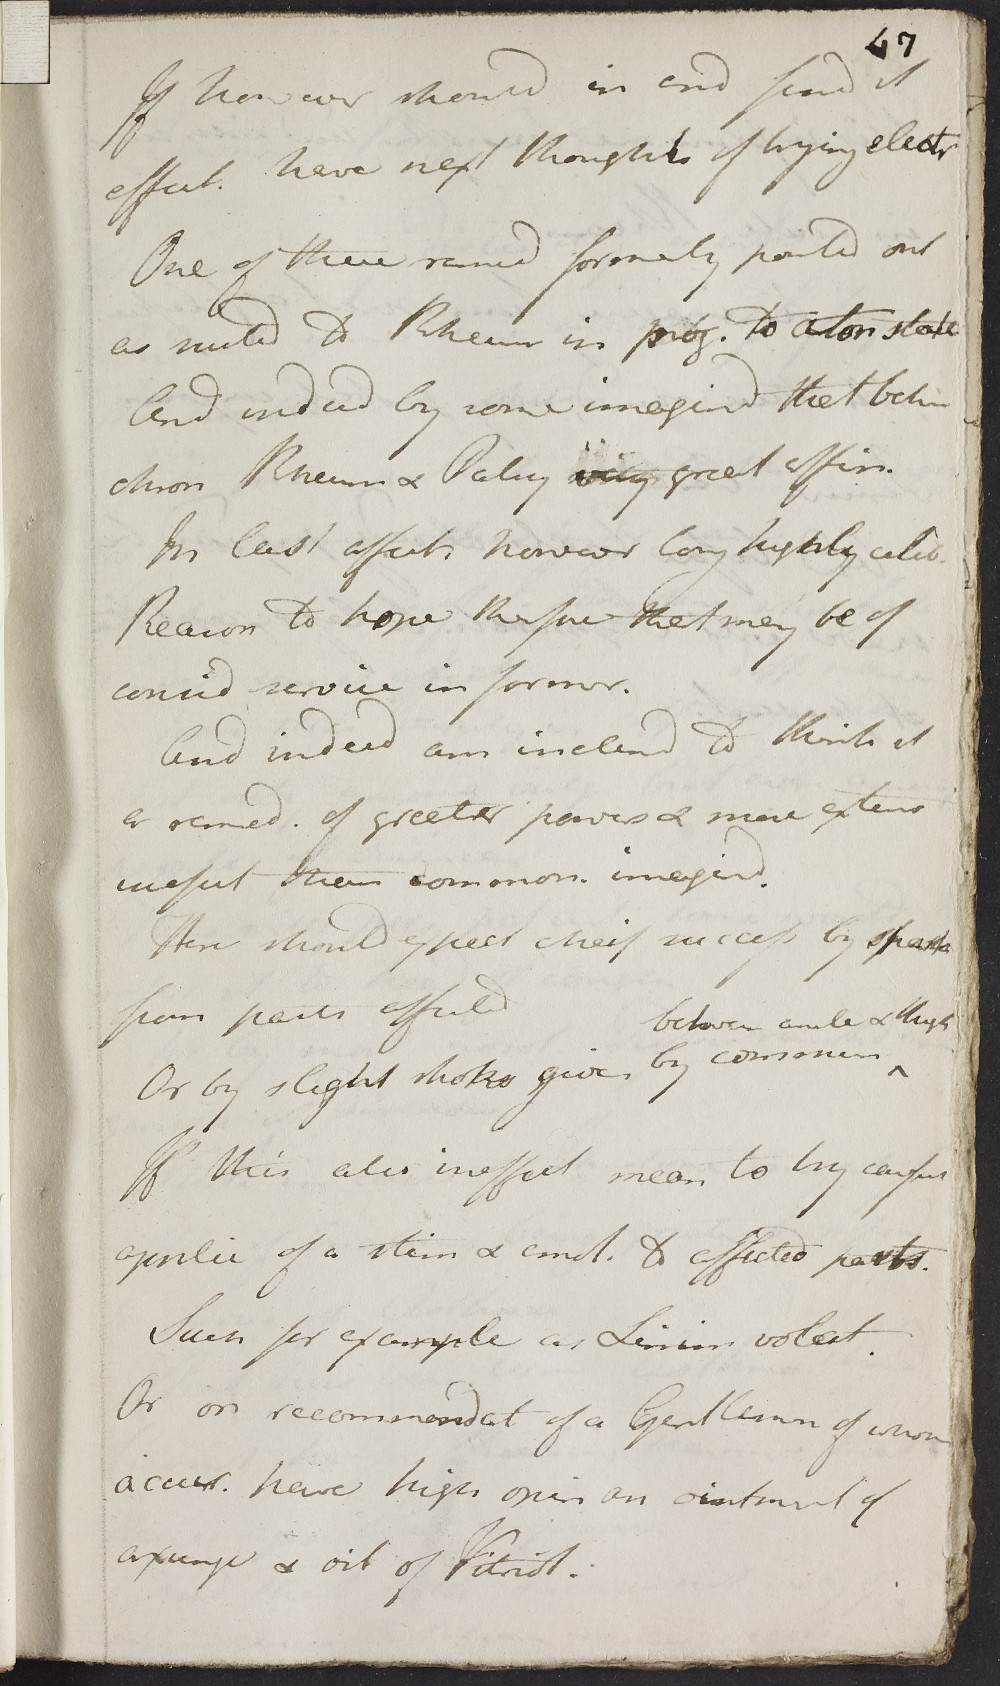 47
If however should in end find it
effect. have next thoughts of trying electr
One of these remed formerly pointed out
as suited to Rheum in prog. to aton state
And indeed by some imagind that betw
chron Rheum & Palsy very great affin.
In last affects however long highly celeb.
Reason to hope therfore that may be of
consid service in former.
And indeed am inclend to think it
a remed. of greater powers & more extens
usefult than common. imagind.
Here should expect cheif success by sparks
from parts affected
between ancle & thigh
Or by slight shoks given by commun ^
If this also ineffect mean to try carefull
applic of a stim & emol. to affected parts.
Such for example as Linim volat.
Or on recommendat of a Gentlemn of whose
accur. have high opin an ointment of
axunge & oil of Vitriol.